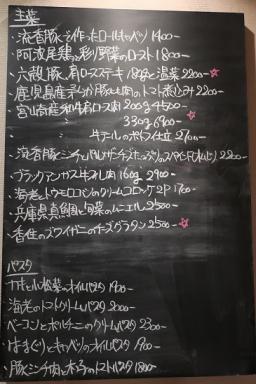 主菜
・流香豚で作ったロールキャベツ 1900-
・阿波尾鶏と彩り野菜のロースト 1800-
・六穀豚、肩ロースステーキ 180gと温菜 2200-
・鹿児島産 豚もも肉のトマト煮込み 2200-
・宮崎産和牛肩ロース肉 200g 4500-
〃 330g 6900-
〃 牛テールのポトフ仕立 2700-
・流香豚ミンチとパルメザンチーズ 2200-
・ブラックアンガス牛 肉 160g 2900-
・海老とトウモロコシのクリームコロッケ 2P 1700-
・兵庫県真鯛と旬菜のムニエル 2500-
・香住のズワイガニのチーズグラタン 2500-
パスタ
・ と小松菜のオイルパスタ 1900-
・海老のトマトクリームパスタ 2000-
・ベーコンとポルチーニのクリームパスタ 2300-
・はまぐりとキャベツのオイルパスタ 1900-
・豚ミンチ肉と木の子のトマトパスタ 1800-